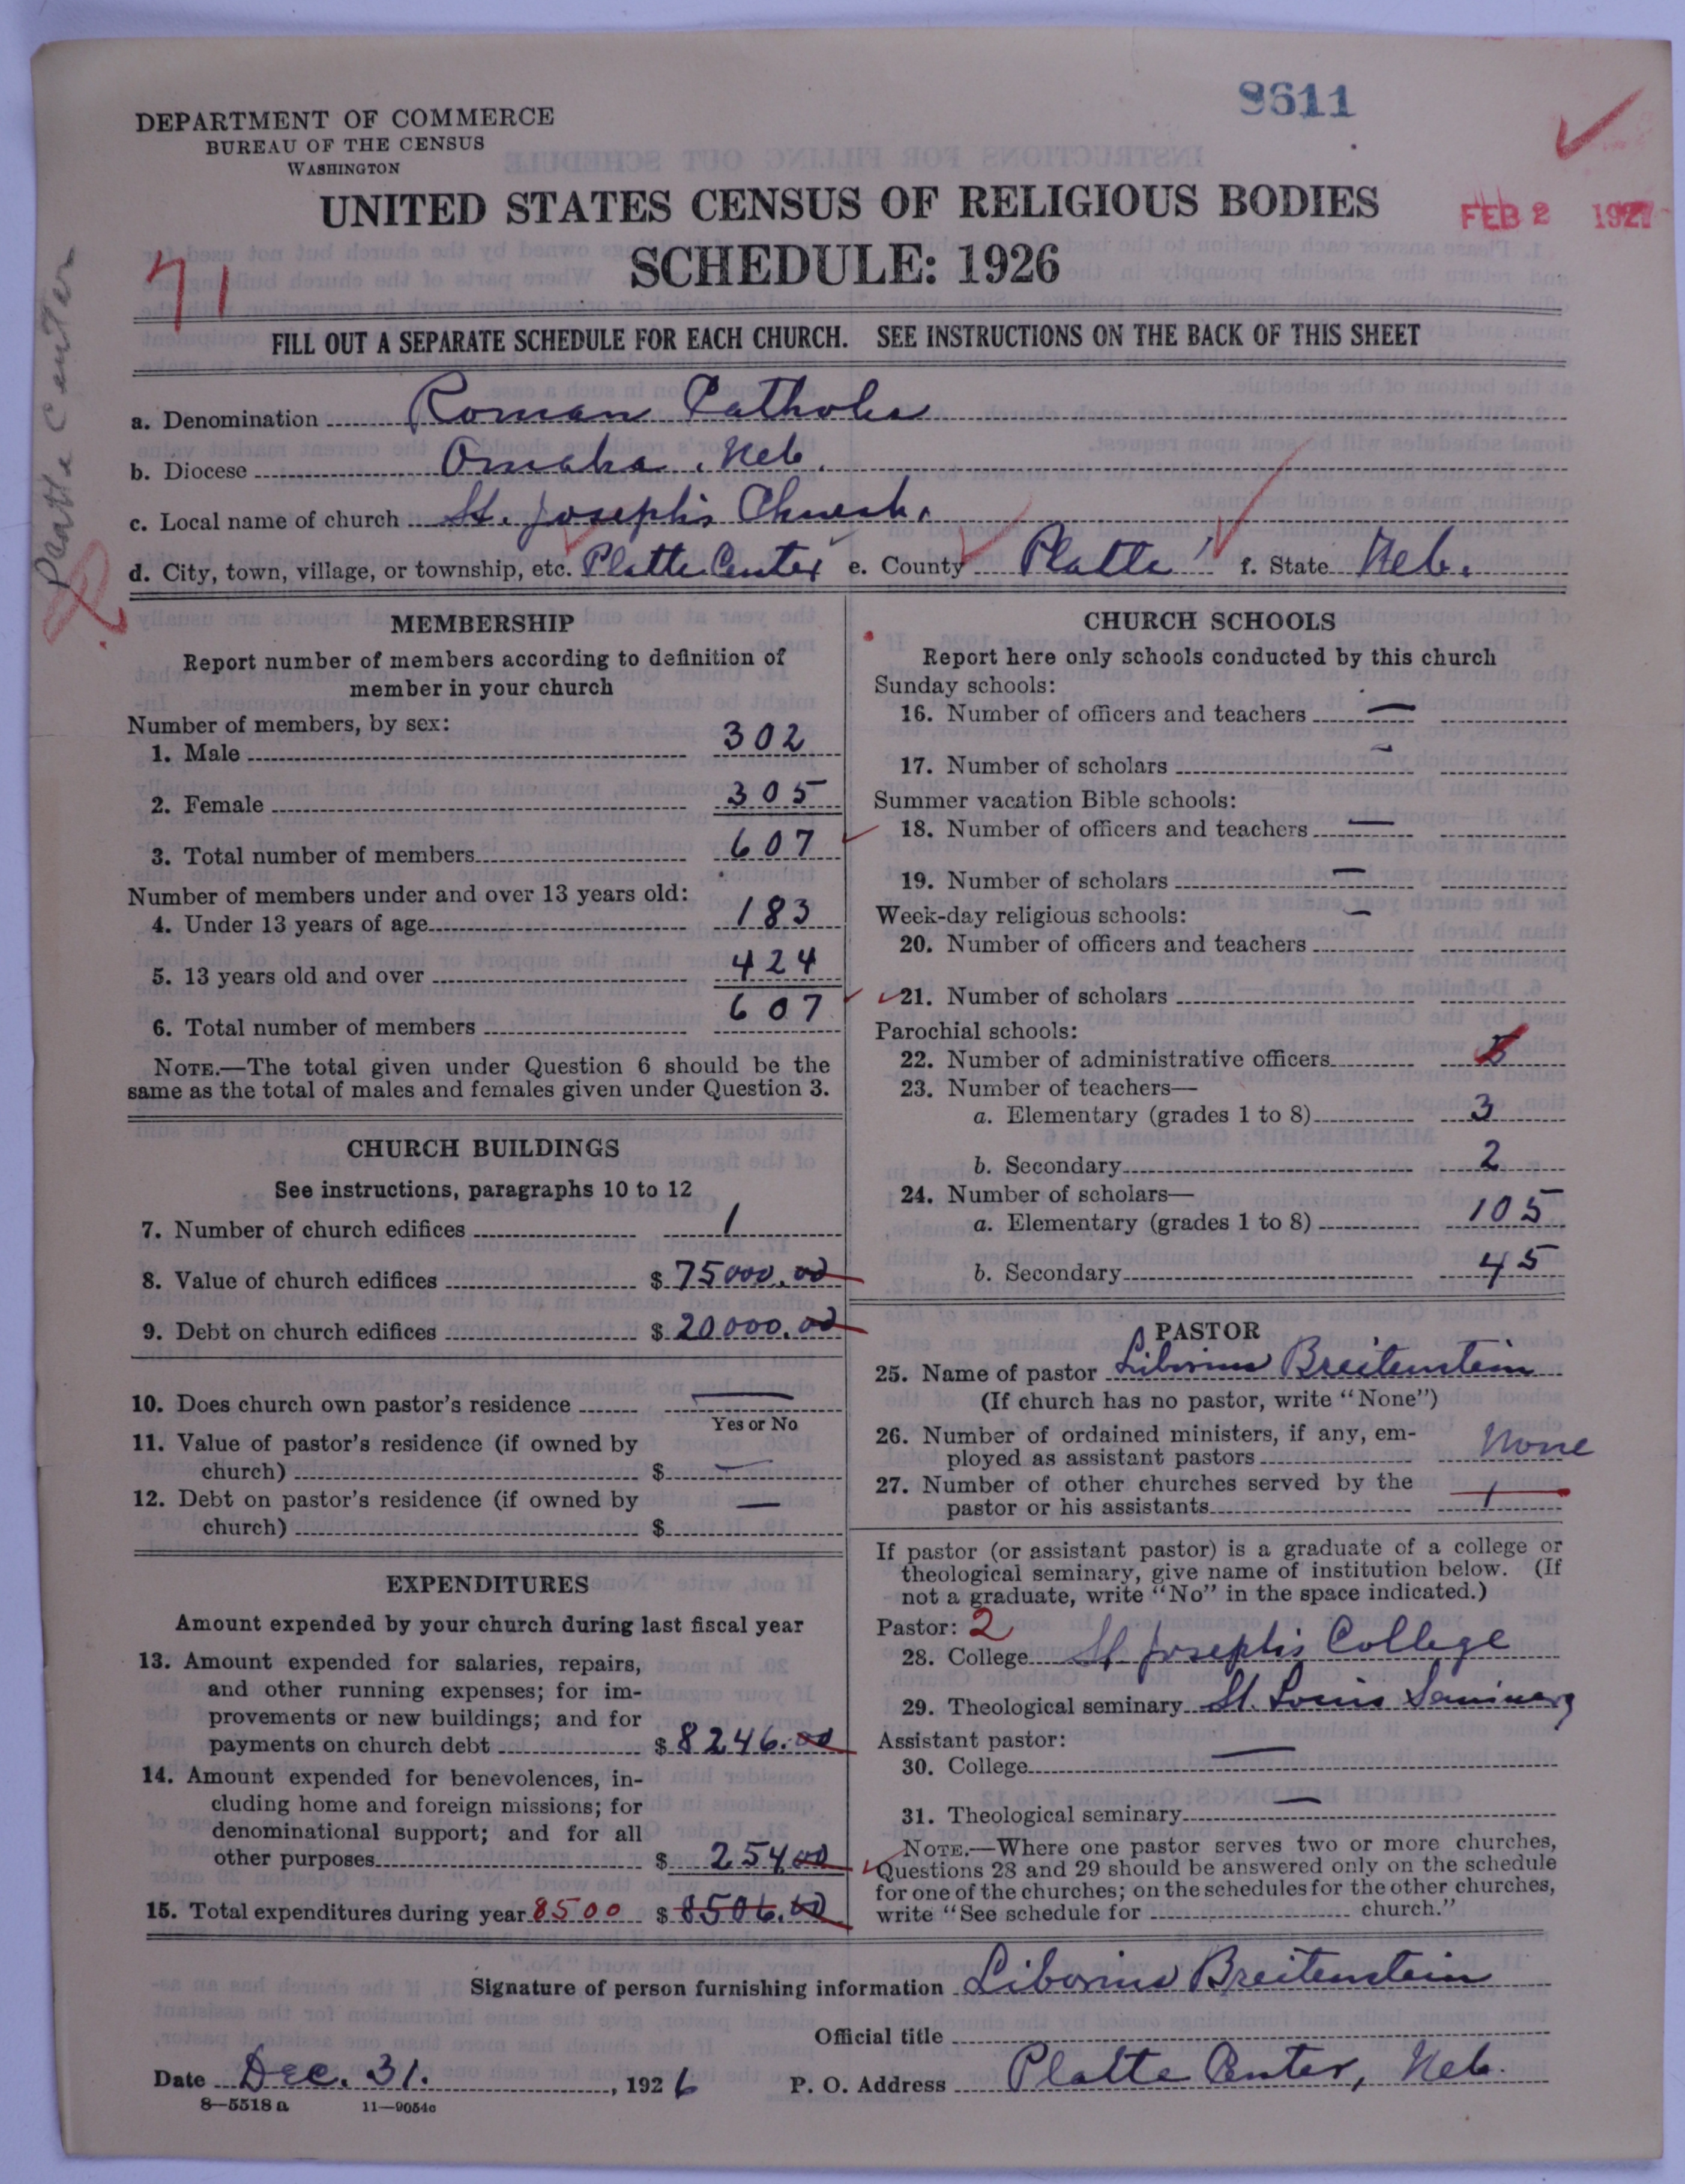 8611
DEPARTMENT OF COMMERCE
BUREAU OF THE CENSUS
WASHINGTON
UNITED STATES CENSUS OF RELIGIOUS BODIES
FEB 2 1927
SCHEDULE: 1926
71
Platte Center
FILL OUT A SEPARATE SCHEDULE FOR EACH CHURCH. SEE INSTRUCTIONS ON THE BACK OF THIS SHEET
a. Denomination Roman Catholic
b. Diocese Omaha, Neb.
c. Local name of church St. Joseph's Church.
d. City, town, village, or township, etc. Platte Center e. County Platte f. State Neb.
MEMBERSHIP
Report number of members according to definition of
member in your church
Number of members, by sex:
1. Male 302
2. Female 305
3. Total number of members 607
Number of members under and over 13 years old:
4. Under 13 years of age 183
5. 13 years old and over 424
6. Total number of members 607
NOTE.—The total given under Question 6 should be the
same as the total of males and females given under Question 3.
CHURCH BUILDINGS
See instructions, paragraphs 10 to 12
7. Number of church edifices 1
8. Value of church edifices $ 75000.00
9. Debt on church edifices $ 20000.00
10. Does church own pastor's residence —
Yes or No
11. Value of pastor's residence (if owned by
church) $ —
12. Debt on pastor's residence (if owned by
church) $ —
EXPENDITURES
Amount expended by your church during last fiscal year
13. Amount expended for salaries, repairs,
and other running expenses; for im-
provements or new buildings; and for
payments on church debt $ 8246.00
14. Amount expended for benevolences, in-
cluding home and foreign missions; for
denominational support; and for all
other purposes $ 254.00
15. Total expenditures during year 8500 $ 8506.00
CHURCH SCHOOLS
Report here only schools conducted by this church
Sunday schools:
16. Number of officers and teachers —
17. Number of scholars —
Summer vacation Bible schools:
18. Number of officers and teachers —
19. Number of scholars —
Week-day religious schools:
20. Number of officers and teachers —
21. Number of scholars
Parochial schools:
22. Number of administrative officers
23. Number of teachers—
a. Elementary (grades 1 to 8) 3
b. Secondary 2
24. Number of scholars—
a. Elementary (grades 1 to 8) 105
b. Secondary 45
PASTOR
25. Name of pastor Liborius Breitenstein
(If church has no pastor, write "None")
26. Number of ordained ministers, if any, em-
ployed as assistant pastors None
27. Number of other churches served by the
pastor or his assistants 1
If pastor (or assistant pastor) is a graduate of a college or
theological seminary, give name of institution below. (If
not a graduate, write "No" in the space indicated.)
Pastor: 2
28. College St Joseph's College
29. Theological seminary St. Louis Seminary
Assistant pastor:
30. College —
31. Theological seminary —
NOTE.—Where one pastor serves two or more churches,
Questions 28 and 29 should be answered only on the schedule
for one of the churches; on the schedules for the other churches,
write "See schedule for church."
Signature of person furnishing information Liborius Breitenstein
Official title
Date Dec. 31. , 1926 P. O. Address Platte Center, Neb.
8—5518 a 11—9054c